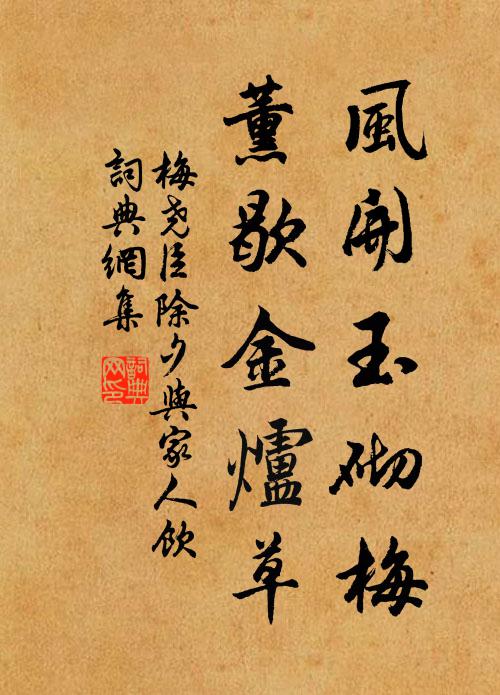 風開玉砌梅
薰歇金爐草
梅堯臣除夕與家人飲
詞典網集
詞典
網印